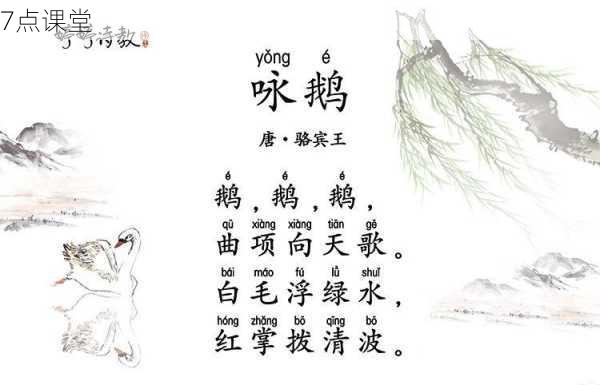 7点课堂
婷婷诗教
yǒng é
咏鹅
唐·骆宾王
é é é
鹅,鹅,鹅,
qū xiàng xiàng tiān gē
曲项向天歌。
bái máo fú lǜ shuǐ
白毛浮绿水,
hóng zhǎng bō qīng bō
红掌拨清波。